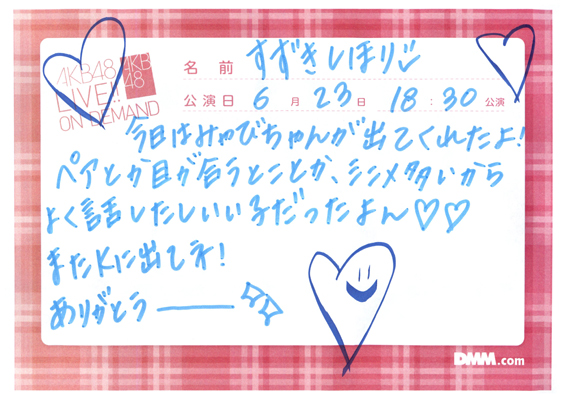 AKB48
LIVE!!
ON DEMAND
AKB
48
名前 すずきしほり
公演日 6月23日 18:30公演
今日はみゃびちゃんが出てくれたよ!
ペアとか目が合うとことか、シンメ多いから
よく話したしいい子だったよん♡♡
またKに出てネ!
ありがとう———
DMM.com